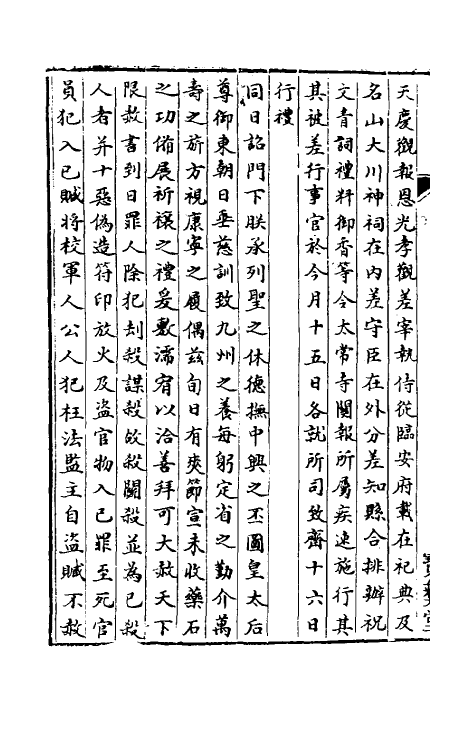 天慶觀報恩光孝觀差宰執侍從臨安府載在祀典及
名山大川神祠在內差守臣在外分差知縣合排辦祝
文青詞禮料御香等令太常寺關報所屬疾速施行其
其被差行事官於今月十五日各就所司致齋十六日
行禮
同日詔門下朕承列聖之休德撫中興之丕圖皇太后
尊御東朝日垂慈訓致九州之養每躬定省之勤介萬
壽之祈方視康寧之履偶兹旬日有爽節宣未收藥石
之功備展祈禳之禮爰敷濡宥以洽善拜可大赦天下
限赦書到日罪人除犯刦殺謀殺故殺鬭殺並為已殺
人者并十惡偽造符印放火及盜官物入己罪至死官
員犯入己贓將校軍人公人犯枉法監主自盜贓不赦